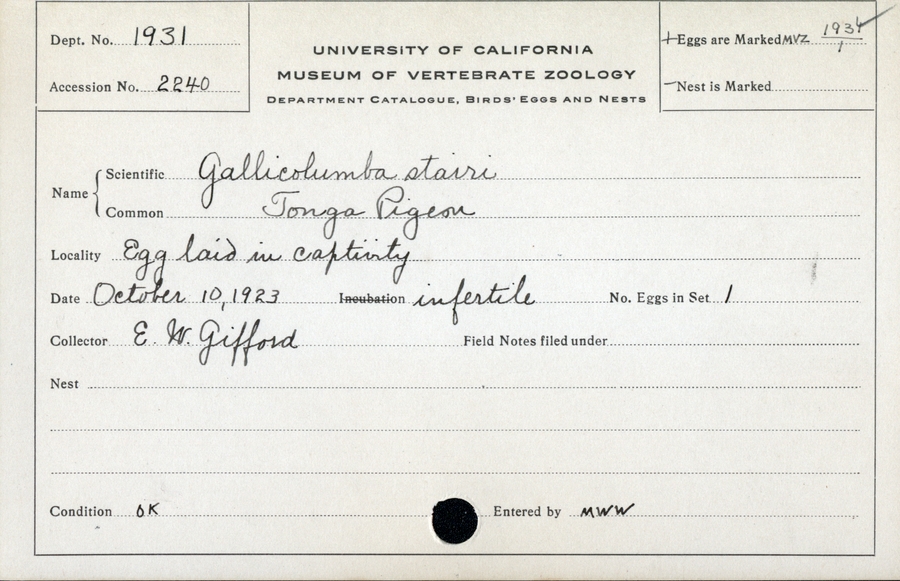 Dept. No. 1931
Accession No. 2240
UNIVERSITY OF CALIFORNIA
MUSEUM OF VERTEBRATE ZOOLOGY
DEPARTMENT CATALOGUE, BIRDS' EGGS AND NESTS
+Eggs are Marked MVZ 1931/1
-Nest is Marked
Name
Scientific Gallicolumba stairi
Common Tonga Pigeon
Locality Egg laid in captivity
Date October 10, 1923 Incubation infertile No. Eggs in Set 1
Collector E. W. Gifford Field Notes filed under
Nest
Condition OK Entered by MWW